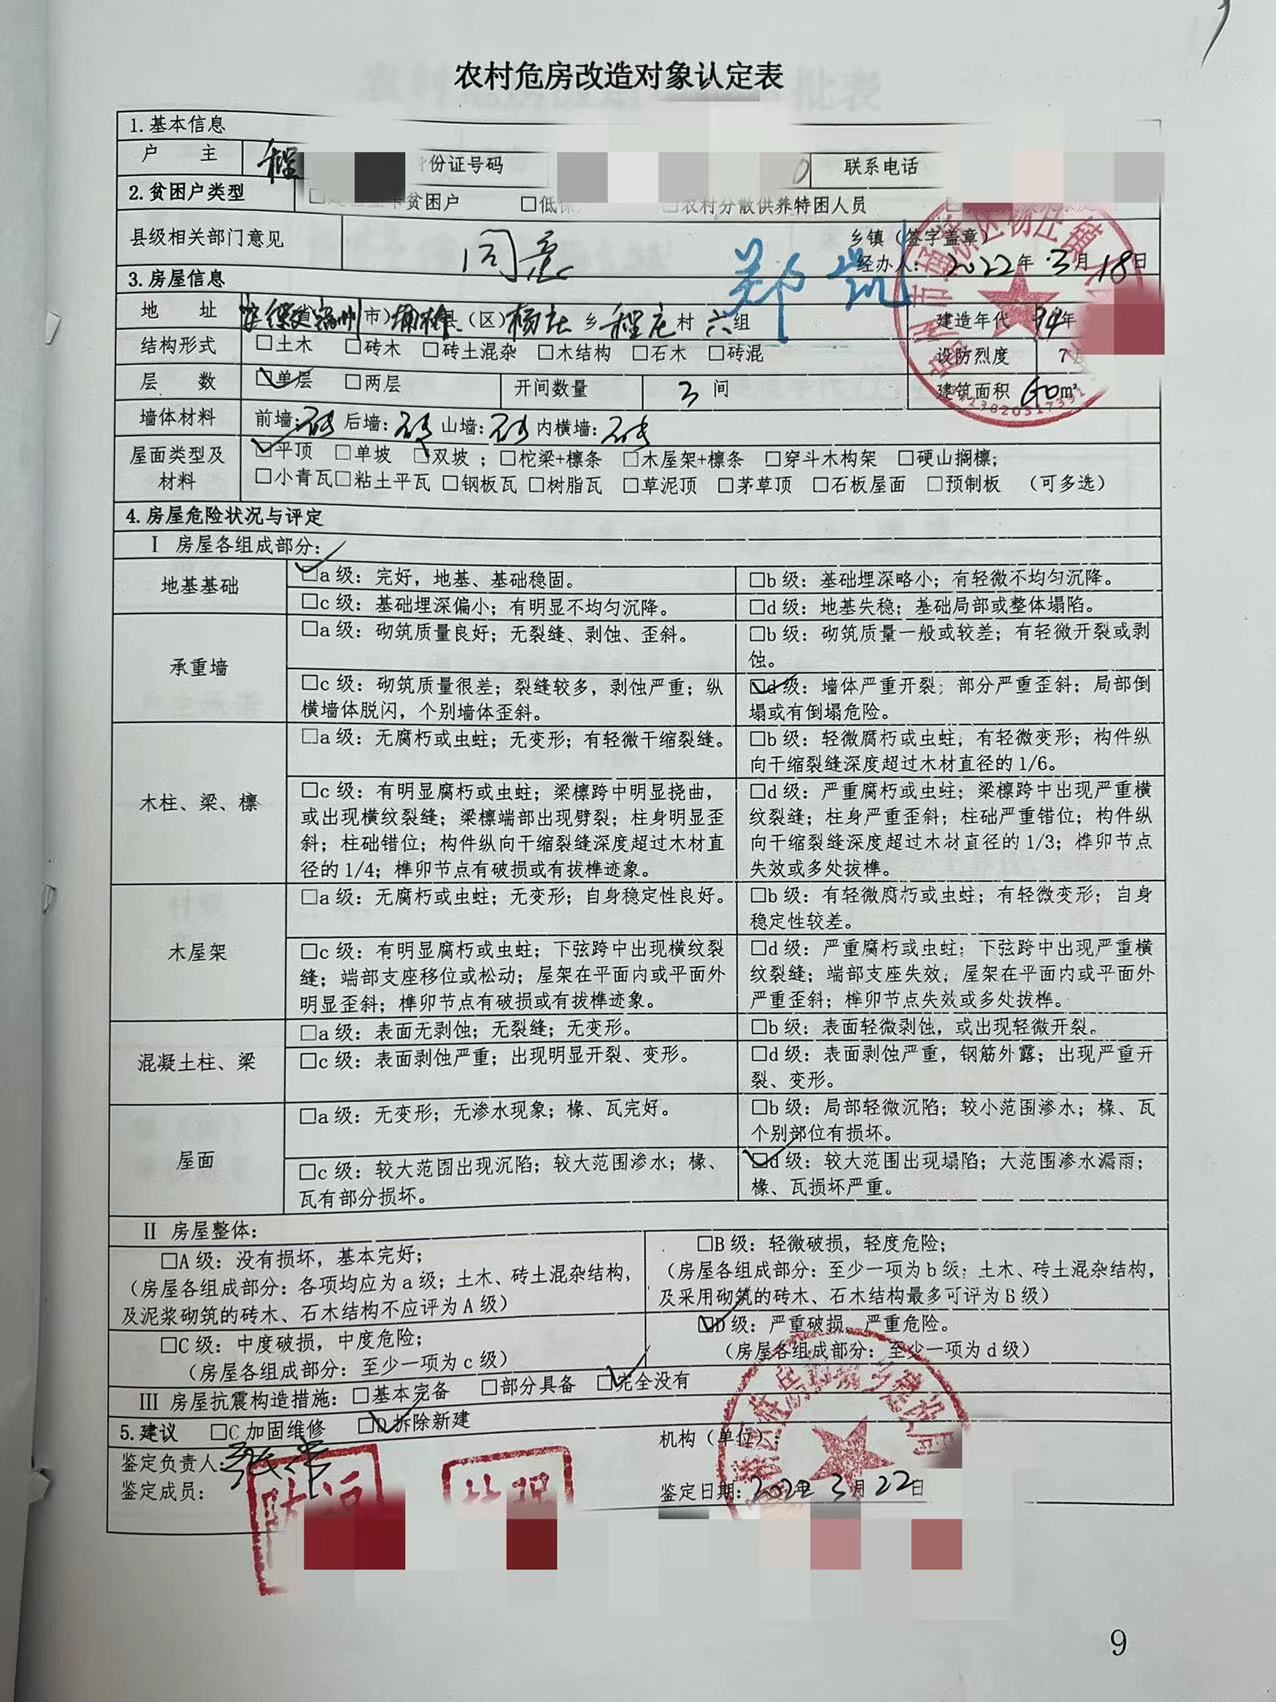 农村危房改造对象认定表
1.基本信息
户 主 程 份证号码 联系电话
2.贫困户类型 贫困户 □低保 □农村分散供养特困人员
县级相关部门意见 同意 乡镇（签字盖章）
经办人： 2022年3月18日
3.房屋信息
地 址 安徽省宿州市 埇桥县（区）杨庄乡程庄村六组 建造年代 94年
结构形式 □土木 □砖木 □砖土混杂 □木结构 □石木 □砖混 设防烈度 7
层 数 ☑单层 □两层 开间数量 3间 建筑面积 60m²
墙体材料 前墙：砖 后墙：砖 山墙：砖 内横墙：砖
屋面类型及材料 ☑平顶 □单坡 □双坡；□柁梁+檩条 □木屋架+檩条 □穿斗木构架 □硬山搁檩；
□小青瓦□粘土平瓦 □钢板瓦 □树脂瓦 □草泥顶 □茅草顶 □石板屋面 □预制板 （可多选）
4.房屋危险状况与评定
Ⅰ 房屋各组成部分：
地基基础
☑a级：完好，地基、基础稳固。
□b级：基础埋深略小；有轻微不均匀沉降。
□c级：基础埋深偏小；有明显不均匀沉降。
□d级：地基失稳；基础局部或整体塌陷。
承重墙
□a级：砌筑质量良好；无裂缝、剥蚀、歪斜。
□b级：砌筑质量一般或较差；有轻微开裂或剥
蚀。
□c级：砌筑质量很差；裂缝较多，剥蚀严重；纵
横墙体脱闪，个别墙体歪斜。
☑d级：墙体严重开裂；部分严重歪斜；局部倒
塌或有倒塌危险。
木柱、梁、檩
□a级：无腐朽或虫蛀；无变形；有轻微干缩裂缝。
□b级：轻微腐朽或虫蛀，有轻微变形；构件纵
向干缩裂缝深度超过木材直径的1/6。
□c级：有明显腐朽或虫蛀；梁檩跨中明显挠曲，
或出现横纹裂缝；梁檩端部出现劈裂；柱身明显歪
斜；柱础错位；构件纵向干缩裂缝深度超过木材直
径的1/4；榫卯节点有破损或有拔榫迹象。
□d级：严重腐朽或虫蛀；梁檩跨中出现严重横
纹裂缝；柱身严重歪斜；柱础严重错位；构件纵
向干缩裂缝深度超过木材直径的1/3；榫卯节点
失效或多处拔榫。
木屋架
□a级：无腐朽或虫蛀；无变形；自身稳定性良好。
□b级：有轻微腐朽或虫蛀；有轻微变形；自身
稳定性较差。
□c级：有明显腐朽或虫蛀；下弦跨中出现横纹裂
缝；端部支座移位或松动；屋架在平面内或平面外
明显歪斜；榫卯节点有破损或有拔榫迹象。
□d级：严重腐朽或虫蛀；下弦跨中出现严重横
纹裂缝；端部支座失效，屋架在平面内或平面外
严重歪斜；榫卯节点失效或多处拔榫。
混凝土柱、梁
□a级：表面无剥蚀；无裂缝；无变形。
□b级：表面轻微剥蚀，或出现轻微开裂。
□c级：表面剥蚀严重；出现明显开裂、变形。
□d级：表面剥蚀严重，钢筋外露；出现严重开
裂、变形。
屋面
□a级：无变形；无渗水现象；椽、瓦完好。
□b级：局部轻微沉陷；较小范围渗水；椽、瓦
个别部位有损坏。
□c级：较大范围出现沉陷；较大范围渗水；椽、
瓦有部分损坏。
☑d级：较大范围出现塌陷；大范围渗水漏雨；
椽、瓦损坏严重。
Ⅱ 房屋整体：
□A级：没有损坏，基本完好；
（房屋各组成部分：各项均应为a级；土木、砖土混杂结构，
及泥浆砌筑的砖木、石木结构不应评为A级）
□B级：轻微破损，轻度危险；
（房屋各组成部分：至少一项为b级；土木、砖土混杂结构，
及采用砌筑的砖木、石木结构最多可评为B级）
□C级：中度破损，中度危险；
（房屋各组成部分：至少一项为c级）
☑D级：严重破损，严重危险。
（房屋各组成部分：至少一项为d级）
Ⅲ 房屋抗震构造措施：□基本完备 □部分具备 ☑完全没有
5.建议 □C加固维修 ☑D拆除新建
鉴定负责人：
鉴定成员：
机构（单位）：
鉴定日期：2022年3月22日
9